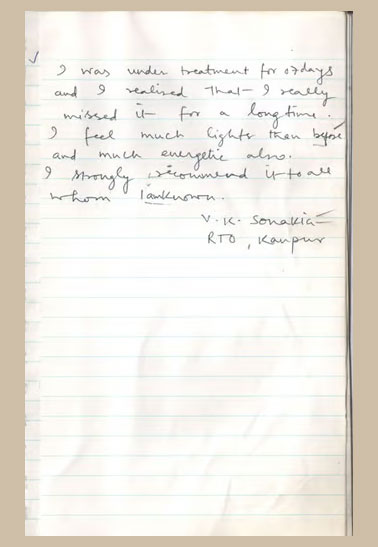 I was under treatment for 07 days
and I realised that I really
missed it for a long time.
I feel much lighter than before
and much energetic also.
I strongly recommend it to all
whom I am known.
V. K. Sonakia
RTO, Kanpur